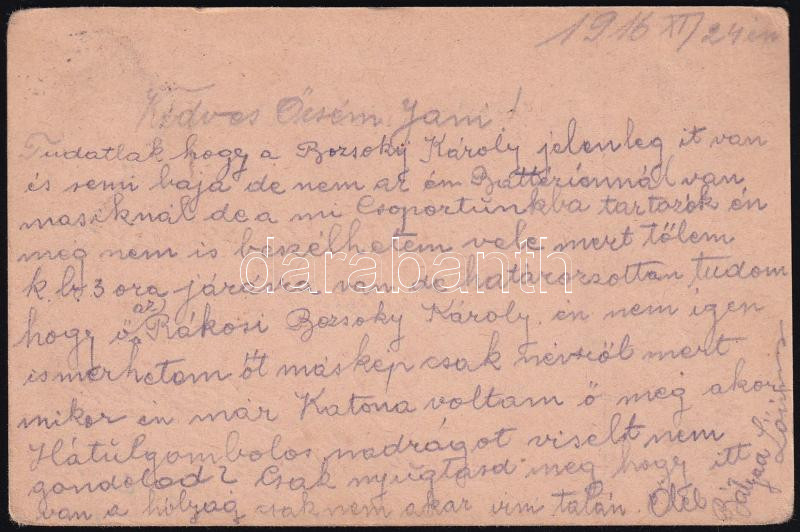 1916 XII/24 én
Kedves Öcsém Jani!
Tudatlak hogy a Bozsoky Károly jelenleg it van
és semi baja de nem az ém Battériónnál van
masiknál de a mi Csoportunkba tartozik én
meg nem is beszélhetem vele mert tőlem
k. b. 3 ora járásra van de határorzottan tudom
hogy ő az Rákosi Bozsoky Károly én nem igen
ismerhetam őt máskép csak névröl mert
mikor én már Katona voltam ő meg akor
Hátulgombolos nadrágot viselt nem
gondolod? Csak nyugtasd meg hogy itt
van a hólyag csak nem akar irni talán. Ölel
Bátyad
darabanth